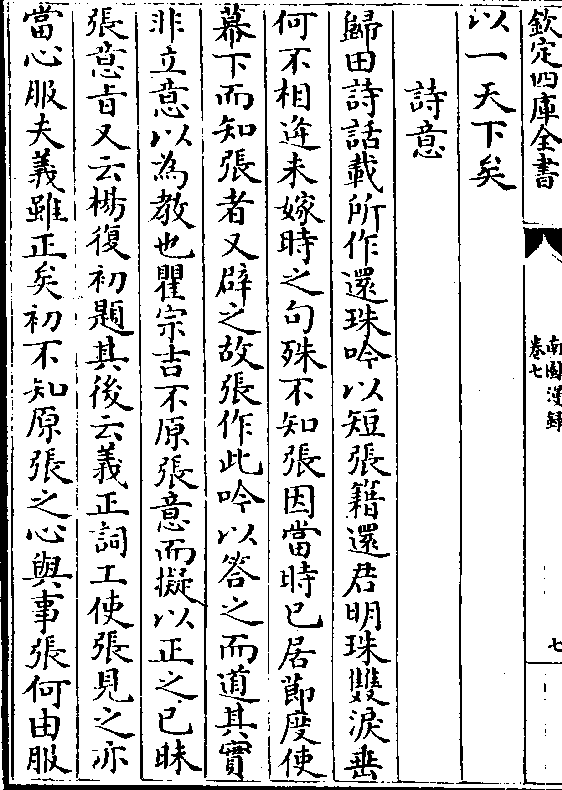 欽定四庫全書
南園漫録
卷七
七
以一天下矣
詩意
歸田詩話載所作還珠吟以短張籍還君明珠雙淚垂
何不相逢未嫁時之句殊不知張因當時已居節度使
幕下而知張者又辟之故張作此吟以答之而道其實
非立意以為教也瞿宗吉不原張意而擬以正之已昧
張意㫖又云楊復初題其後云義正詞工使張見之亦
當心服夫義雖正矣初不知原張之心與事張何由服